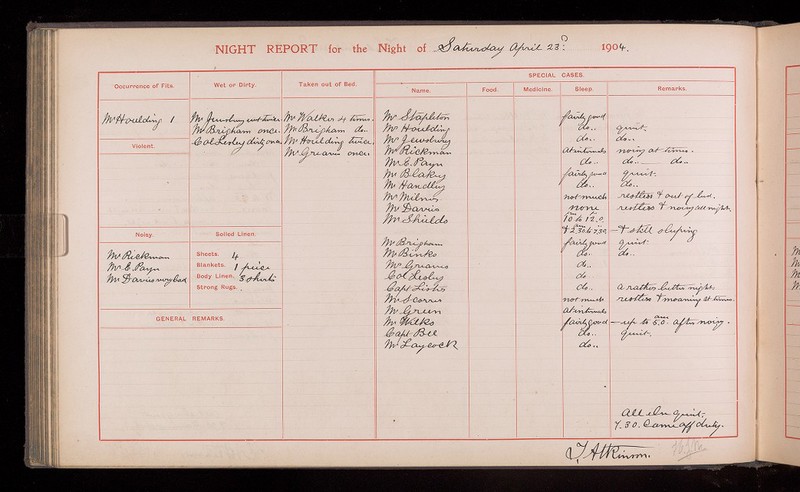 NIGHT REPORT for the Night of Saturday April 23rd. 1904.
SPECIAL CASES.
Occurrence of Fits.
Wet or Dirty.
Taken out of Bed.
Name.
Food.
Medicine.
Sleep.
Remarks.
Mr Houlding 1
Mr Jewsbury wet twice
Mr Brigham once.
Col Lesley dirty once
Mr Walker 4 times.
Mr Brigham do..
Mr Houlding twice.
Mr Greaves once
Violent.
Noisy.
Mr Rickman
Mr E. Payn
Mr Davies very bad
Soiled Linen.
Sheets. 4
Blankets. 1 piece
Body Linen. 3 shirts
Strong Rugs.
GENERAL REMARKS.
Mr Stapleton fairly good
Mr Houlding do.. quiet.
Mr Jewsbury do.. do..
Mr Rickman at intervals noisy at times.
Mr E. Payn do.. do.. do..
Mr Blakey fairly good quiet.
Mr Handley do.. do..
Mr Milnes not much restless & out of bed.
Mr Davies none restless & noisy all night.
Mr Shields 10 to 12.0
& 2.30 to 7.30 & still sleeping
Mr Brigham fairly good quiet.
Mr Binks do.. do..
Mr Greaves do..
Col Lesley do
Capt Lister do.. a rather better night.
Mr Scorrer not much restless & moaning at times.
Mr Green at intervals
Mr Wilks fairly good up to 5.0 am after noisy.
Capt Bell do.. quiet.
Mr Laycock do..
All else quiet,
7.30. Came off duty.
T. Atkinson.